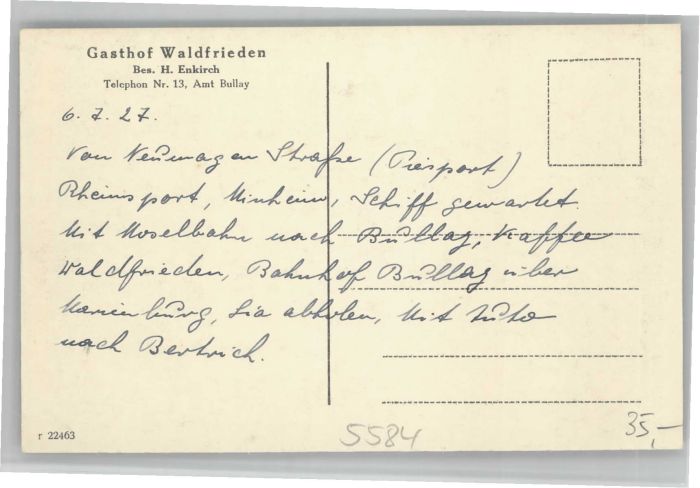 Gasthof Waldfrieden
Bes. H. Enkirch
Telephon Nr. 13, Amt Bullay
6. 7. 27.
Von Neumagen Straße (Piesport)
Rheinsport, Minheim, Schiff gewartet.
Mit Moselbahn nach Bullay, Kaffee
Waldfrieden, Bahnhof Bullay über
Marienburg, Lia abholen, Mit Auto
nach Bertrich.
r 22463
5584
35,-